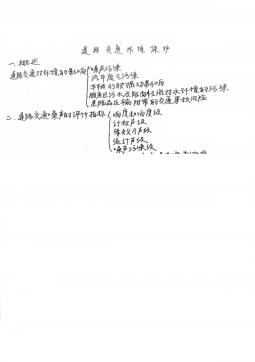 道路交通环境保护
一.概述
道路交通对环境的影响 噪声污染
汽车废气污染
车辆的振动影响
服务区污水及路面径流对水环境的污染
危险品运输附带的交通事故风险
二.道路交通噪声的评价指标 响度和响度级
计权声级
等效A声级
统计声级
噪声污染级